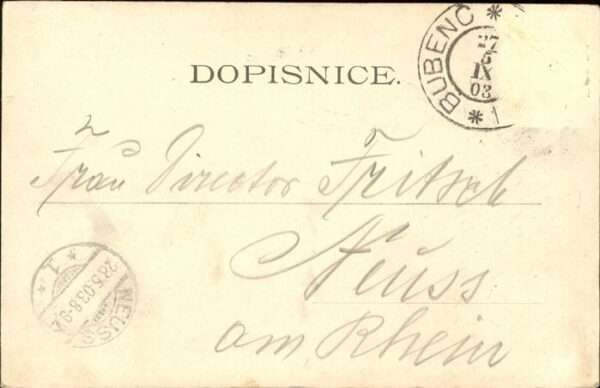 DOPISNICE.
* BUBENC *
27
5
IX
03
Frau Director Fritsch
Neuss
am Rhein
* 1 *
28.5.03.8-9
NEUSS